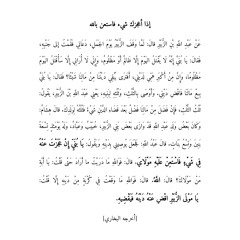 إذا أعجزك شيء، فاستعن بالله
عَنْ عَبْدِ اللهِ بْنِ الزُّبَيْرِ قَالَ: لَمَّا وَقَفَ الزُّبَيْرُ يَوْمَ الجَمَلِ، دَعَانِي فَقُمْتُ إِلَى جَنْبِهِ،
فَقَالَ: يَا بُنَيِّ إِنَّهُ لَا يُقْتَلُ اليَوْمَ إِلَّا ظَالِمٌ أَوْ مَظْلُومٌ، وَإِنِّي لَا أُرَانِي إِلَّا سَأُقْتَلُ اليَوْمَ
مَظْلُومًا، وَإِنَّ مِنْ أَكْبَرِ هَمِّي لَدَيْنِي، أَفَتَرَى يُبْقِي دَيْنُنَا مِنْ مَالِنَا شَيْئًا؟ فَقَالَ: يَا بُنَيِّ
بِعْ مَالَنَا فَاقْضِ دَيْنِي، وَأَوْصَى بِالثُّلُثِ، وَثُلُثِهِ لِبَنِيهِ، يَعْنِي عَبْدَ اللهِ بْنَ الزُّبَيْرِ يَقُولُ:
ثُلُثُ الثُّلُثِ، فَإِنْ فَضَلَ مِنْ مَالِنَا فَضْلٌ بَعْدَ قَضَاءِ الدَّيْنِ شَيْءٌ فَثُلُثُهُ لِوَلَدِكَ. قَالَ هِشَامٌ:
وَكَانَ بَعْضُ وَلَدِ عَبْدِ اللهِ قَدْ وَازَى بَعْضَ بَنِي الزُّبَيْرِ، خُبَيْبٌ وَعَبَّادٌ، وَلَهُ يَوْمَئِذٍ تِسْعَةُ
بَنِينَ وَتِسْعُ بَنَاتٍ. قَالَ عَبْدُ اللهِ: فَجَعَلَ يُوصِينِي بِدَيْنِهِ وَيَقُولُ: يَا بُنَيِّ إِنْ عَجَزْتَ عَنْهُ
فِي شَيْءٍ فَاسْتَعِنْ عَلَيْهِ مَوْلَايَ. قَالَ: فَوَاللهِ مَا دَرَيْتُ مَا أَرَادَ حَتَّى قُلْتُ: يَا أَبَةِ
مَنْ مَوْلَاكَ؟ قَالَ: اللهُ. قَالَ: فَوَاللهِ مَا وَقَعْتُ فِي كُرْبَةٍ مِنْ دَيْنِهِ إِلَّا قُلْتُ:
يَا مَوْلَى الزُّبَيْرِ اقْضِ عَنْهُ دَيْنَهُ فَيَقْضِيهِ.
[أخرجه البخاري]